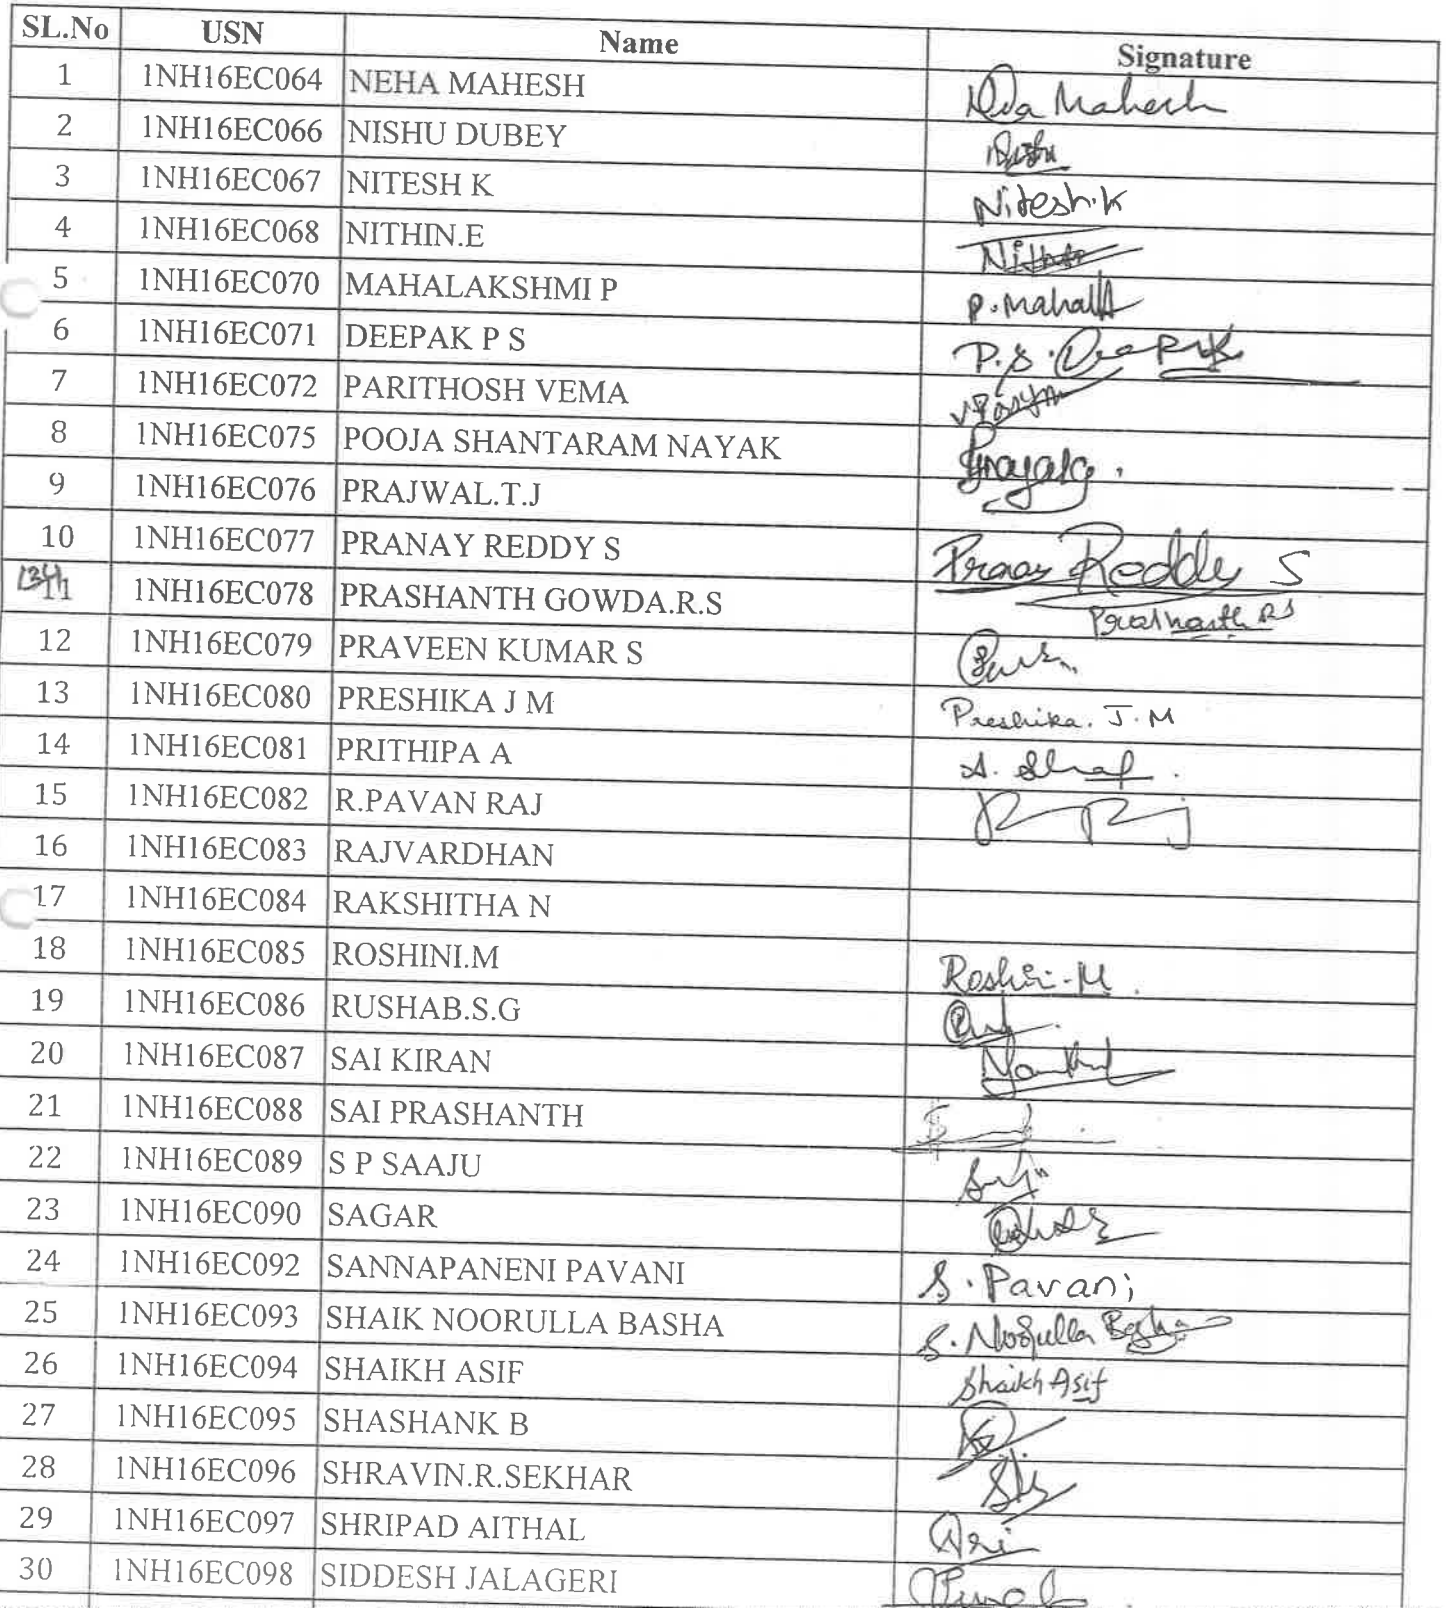 SL.No USN Name Signature
1 1NH16EC064 NEHA MAHESH Mahesh
2 1NH16EC066 NISHU DUBEY
3 1NH16EC067 NITESH K Nitesh.K
4 1NH16EC068 NITHIN.E
5 1NH16EC070 MAHALAKSHMI P
6 1NH16EC071 DEEPAK P S P.S. Deepak
7 1NH16EC072 PARITHOSH VEMA
8 1NH16EC075 POOJA SHANTARAM NAYAK
9 1NH16EC076 PRAJWAL.T.J
10 1NH16EC077 PRANAY REDDY S Reddy S
1NH16EC078 PRASHANTH GOWDA.R.S Prashanth RS
12 1NH16EC079 PRAVEEN KUMAR S
13 1NH16EC080 PRESHIKA J M Preshika. J.M
14 1NH16EC081 PRITHIPA A
15 1NH16EC082 R.PAVAN RAJ
16 1NH16EC083 RAJVARDHAN
17 1NH16EC084 RAKSHITHA N
18 1NH16EC085 ROSHINI.M Roshini.M
19 1NH16EC086 RUSHAB.S.G
20 1NH16EC087 SAI KIRAN
21 1NH16EC088 SAI PRASHANTH
22 1NH16EC089 S P SAAJU
23 1NH16EC090 SAGAR
24 1NH16EC092 SANNAPANENI PAVANI S. Pavani
25 1NH16EC093 SHAIK NOORULLA BASHA S. Noorulla Basha
26 1NH16EC094 SHAIKH ASIF Shaikh Asif
27 1NH16EC095 SHASHANK B
28 1NH16EC096 SHRAVIN.R.SEKHAR
29 1NH16EC097 SHRIPAD AITHAL
30 1NH16EC098 SIDDESH JALAGERI